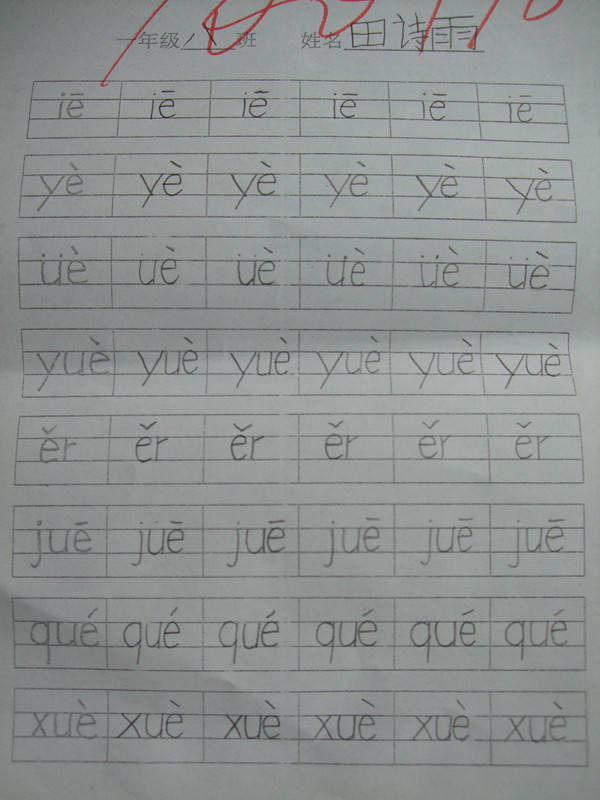 一年级八班 姓名田诗雨
iē iē iē iē iē iē
yè yè yè yè yè yè
üè üè üè üè üè üè
yuè yuè yuè yuè yuè yuè
ěr ěr ěr ěr ěr ěr
juē juē juē juē juē juē
qué qué qué qué qué qué
xuè xuè xuè xuè xuè xuè